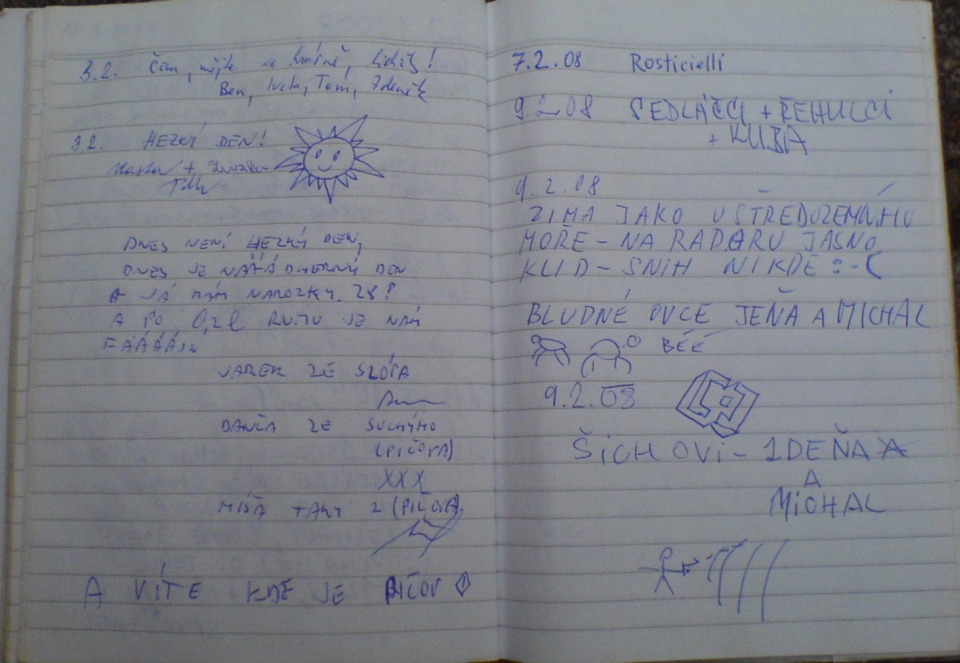 3.2. Čau, mějte se krásně, lidičky!
Ben, Tom, Zdeněk
3.2. HEZKÝ DEN!
DNES NENÍ HEZKÝ DEN,
DNES JE NÁÁÁDHERNÝ DEN
A JÁ MÁM NAROZKY. 28?
A PO 0,2l RUMU JE NÁM
FÁÁÁÁJN
JAREK ZE SLÓPA
DANČA ZE SUCHÝHO
(PIČOVA)
XXX
MÍŠA TAKY Z (PIČOVA)
A VÍTE KDE JE PIČOV
7.2.08 Rosticielli
9.2.08 SEDLÁČCI + ŘEHULCI
+ KUBA
9.2.08
ZIMA JAKO U STŘEDOZEMNÍHO
MOŘE - NA RADARU JASNO
KLID - SNÍH NIKDE :-(
BLUDNÉ OVCE JEŇA A MICHAL
BÉÉ
9.2.08
ŠÍCHOVI - ZDEŇA
A
MICHAL